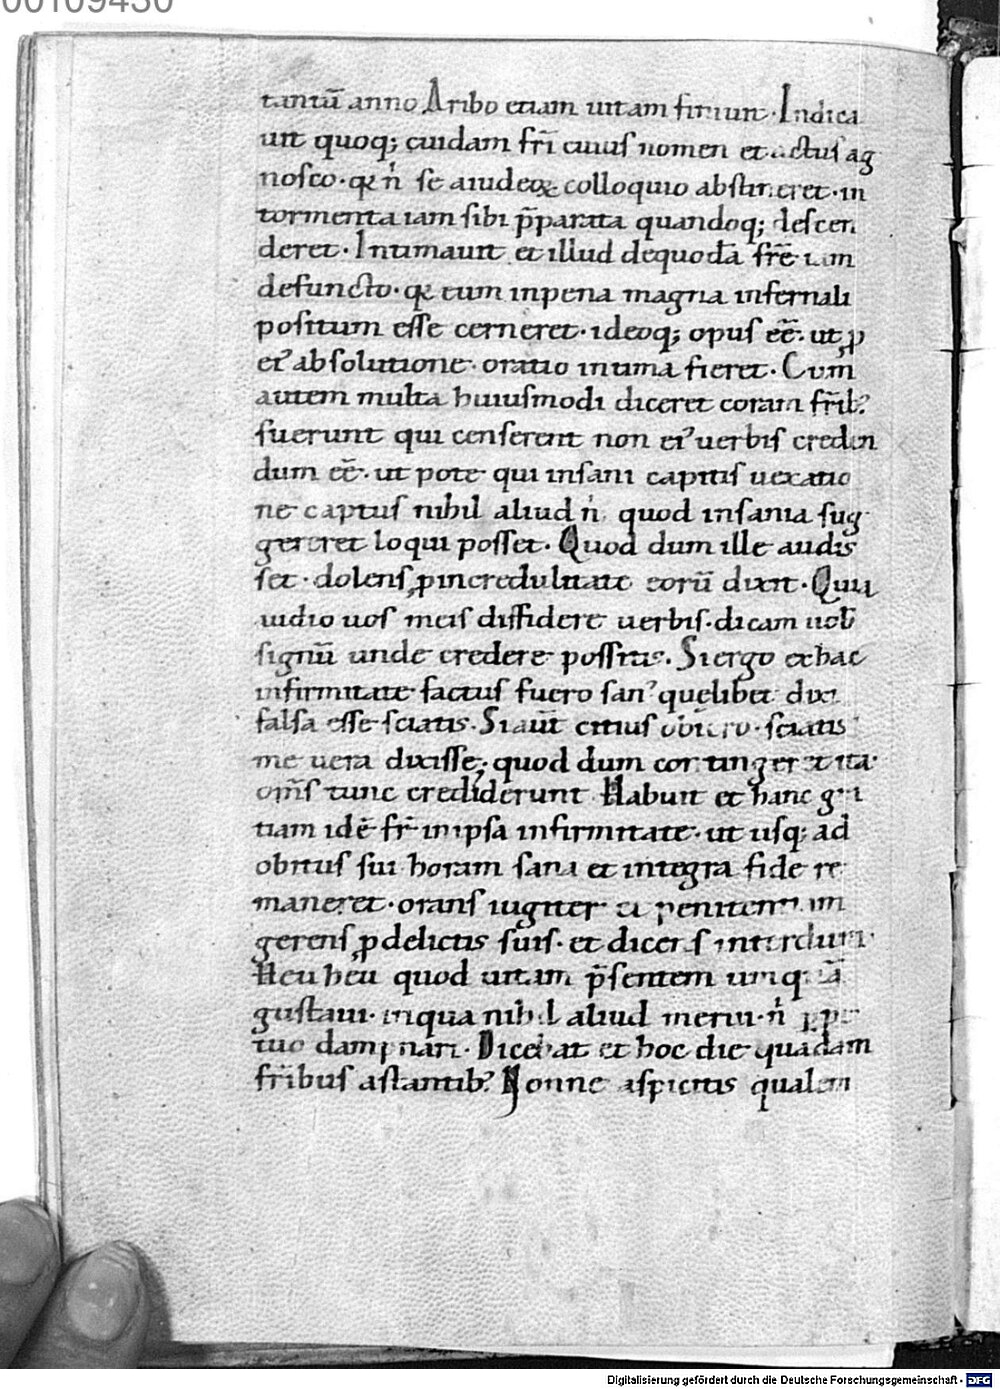 00109430
tantū anno Aribo etiam uitam finiuit. Indica
uit quoq; cuidam fr̄i cuius nomen et actus ag
nosco. qđ n̄ se a iudeoꝝ colloquio abstineret. in
tormenta iam sibi p̄parata quandoq; descen
deret. Intimauit et illud de quodā fr̄e iam
defuncto. qđ eum in pena magna infernali
positum esse cerneret. ideoq; opus eē. ut ꝓ
ei᾽ absolutione oratio intima fieret. Cum
autem multa huiusmodi diceret coram fr̄ib᾽
fuerunt qui censerent non ei᾽ uerbis creden
dum eē. ut pote qui insani capitis uexatio
ne captus nihil aliud n̄ quod insania sug
gereret loqui posset. Quod dum ille audis
set. dolens ꝓ incredulitate eorū dixit. Quia
uidio uos meis diffidere uerbis. dicam uob̄
signū unde credere possitis. Si ergo ex hac
infirmitate factus fuero san᾽ quęlibet dixi
falsa esse sciatis. Si aut̄ citius obiero. sciatis
me uera dixisse; quod dum contingeret ita
om̄s tunc crediderunt. Habuit et hanc gr̄a
tiam idē fr̄ in ipsa infirmitate. ut usq; ad
obitus sui horam sana et integra fide re
maneret. orans iugiter et penitentiam
gerens ꝓ delictis suis. et dicens interdum
Heu heu quod uitam p̄sentem umquā
gustaui. in qua nihil aliud merui. n̄ ꝑpe
tuo dampnari. Dicebat et hoc die quadam
fr̄ibus astantib᾽ Nonne aspicitis qualem
Digitalisierung gefördert durch die Deutsche Forschungsgemeinschaft - DFG